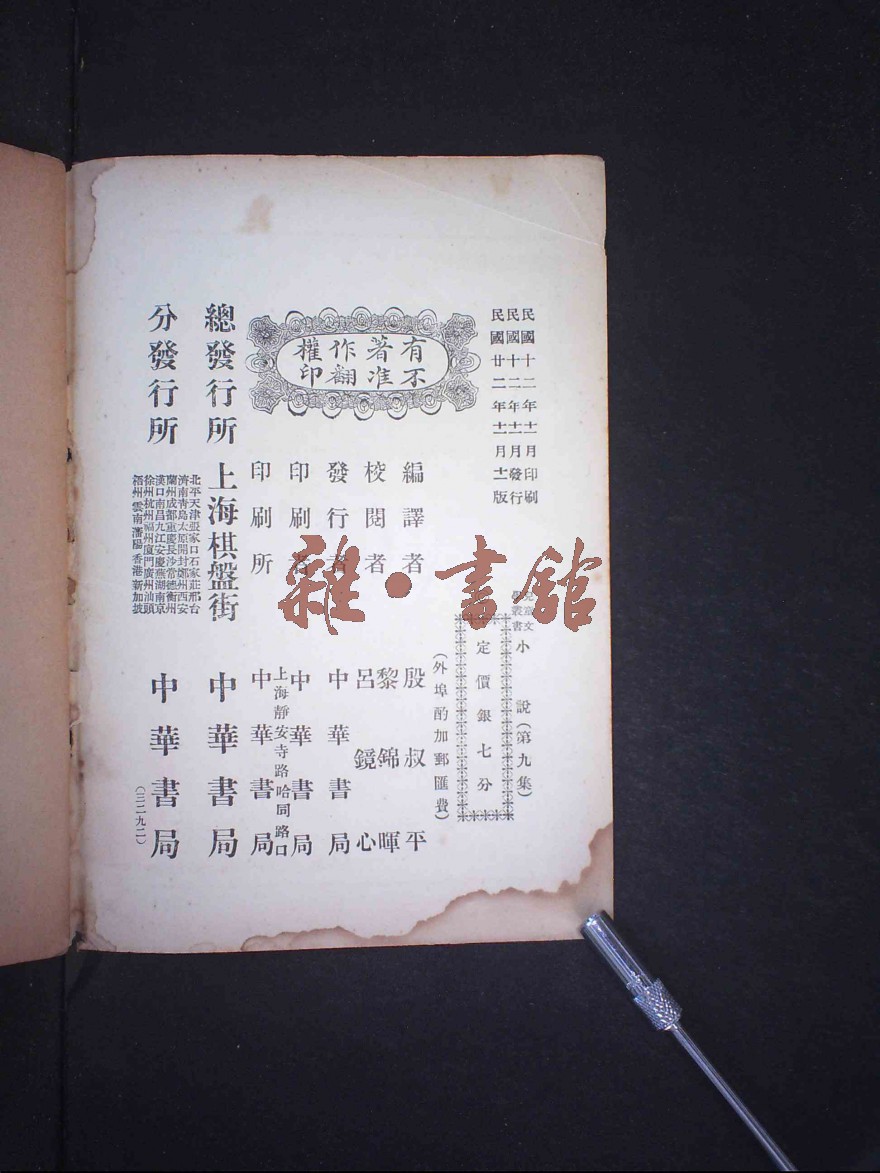 民國十二年十一月印刷
民國十二年十一月發行
民國廿二年十一月十一版
兒童文
學叢書
小說(第九集)
定價銀七分
(外埠酌加郵匯費)
有著作權
不准翻印
編譯者 殷叔平
校閱者 黎錦暉
呂鏡心
發行者 中華書局
印刷者 中華書局
上海靜安寺路哈同路口
印刷所 中華書局
總發行所 上海棋盤街 中華書局
分發行所 中華書局
北平天津張家口石家莊邢台
濟南青島太原開封鄭州西安
蘭州成都重慶長沙常德衡州
漢口南昌九江安慶蕪湖南京
徐州杭州福州廈門廣州汕頭
梧州雲南瀋陽香港新加坡
(三二九二)
雜·書館